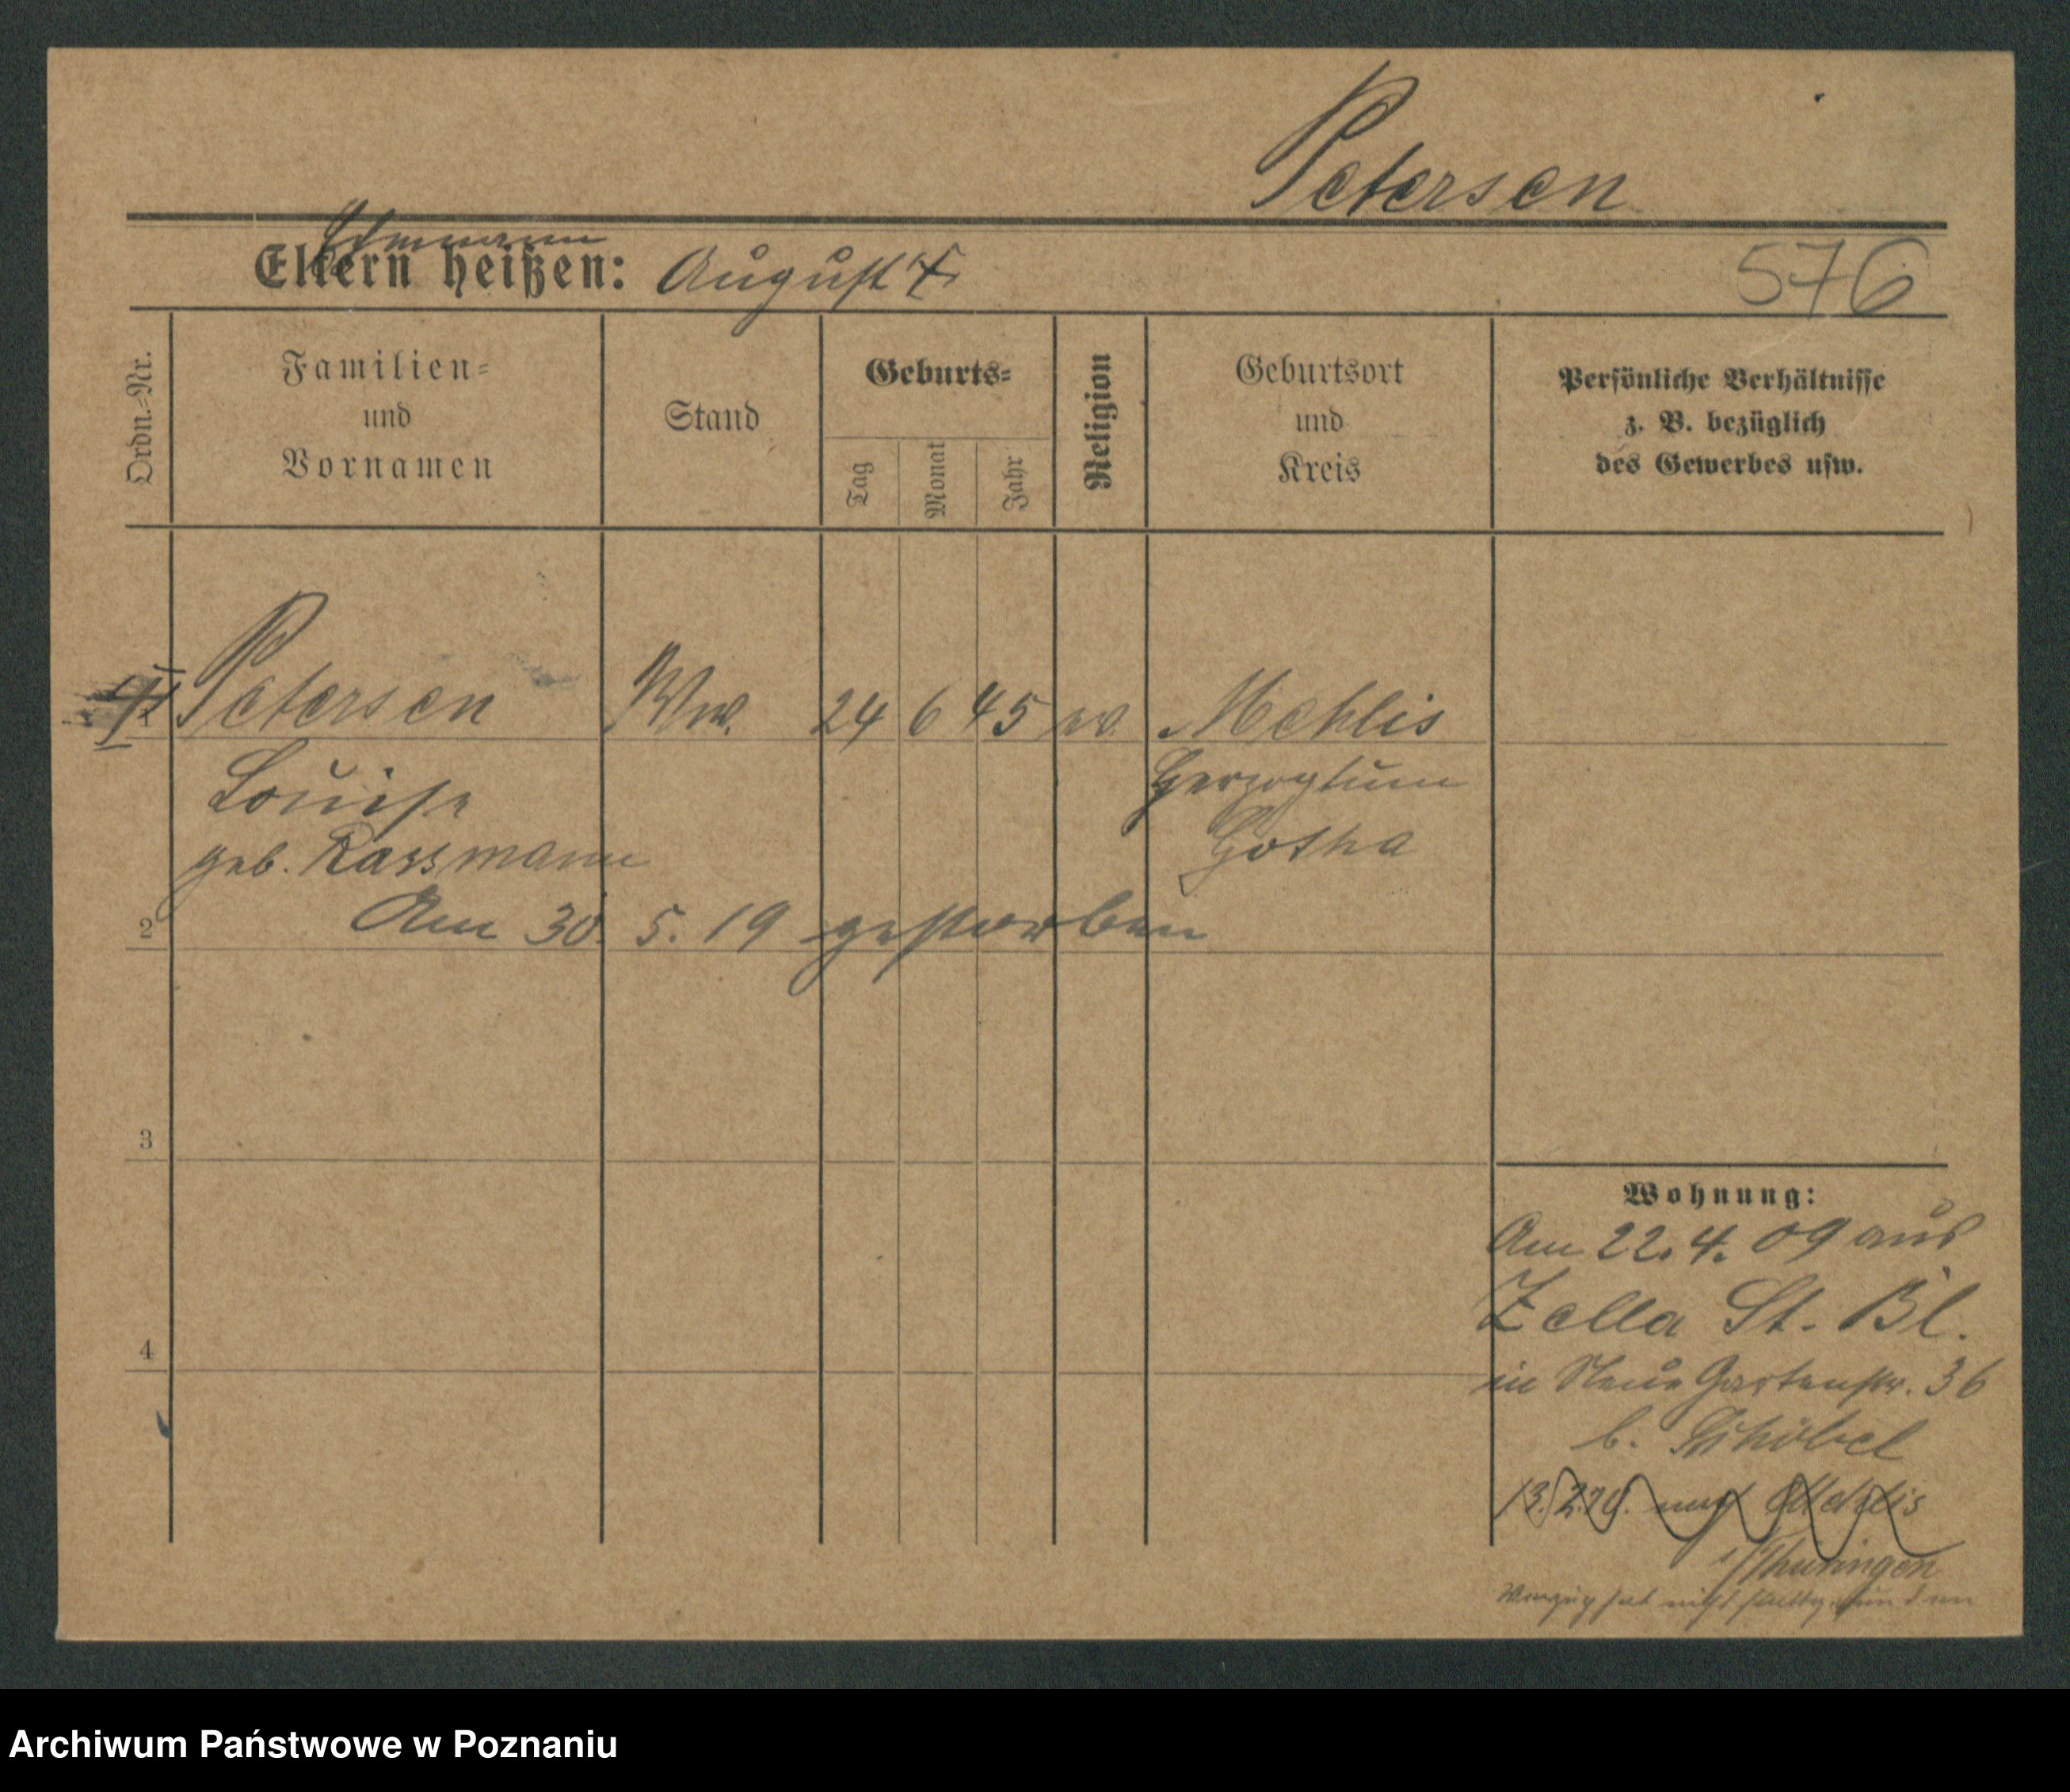 Petersen
Ehmann
Eltern heißen: August †
576
Ordn.-Nr.
Familien-
und
Vornamen
Stand
Geburts-
Tag
Monat
Jahr
Religion
Geburtsort
und
Kreis
Persönliche Verhältnisse
z. B. bezüglich
des Gewerbes usw.
1 Petersen Ww. 24 6 45 ev. Mehlis
Louise Herzogtum
geb. Rassmann Gotha
2 Am 30. 5. 19 gestorben
3
4
Wohnung:
Am 22. 4. 09 aus
Zella St. Bl.
in Neue Gartenstr. 36
b.
nach Mehlis
i/Thuringen
hat nicht stattgefunden
Archiwum Państwowe w Poznaniu